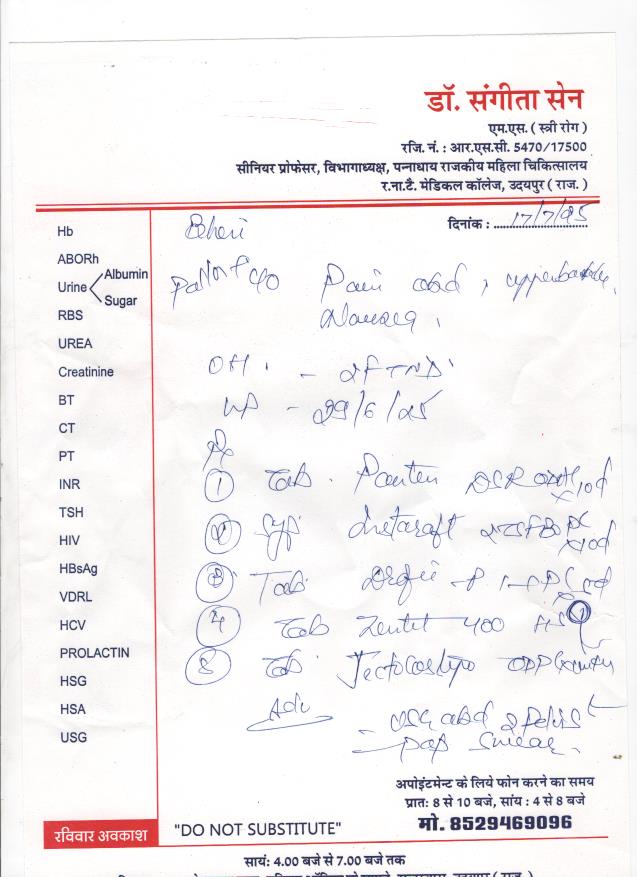 डॉ. संगीता सेन
एम.एस. ( स्त्री रोग )
रजि. नं. : आर.एस.सी. 5470/17500
सीनियर प्रोफेसर, विभागाध्यक्ष, पन्नाधाय राजकीय महिला चिकित्सालय
र.ना.टै. मेडिकल कॉलेज, उदयपुर ( राज. )
दिनांक : 17/7/25
Hb
ABORh
Urine Albumin
Sugar
RBS
UREA
Creatinine
BT
CT
PT
INR
TSH
HIV
HBsAg
VDRL
HCV
PROLACTIN
HSG
HSA
USG
Pain abd,
Nausea,
OH. -
LMP - 29/6/25
Rx
① Tab.
② Syp
③ Tab.
④ Tab Zentel 400 HS
⑤ Tab.
Adv
- USG abd & Pelvis
- pap smear.
अपोइंटमेन्ट के लिये फोन करने का समय
प्रात: 8 से 10 बजे, सांय : 4 से 8 बजे
मो. 8529469096
रविवार अवकाश
"DO NOT SUBSTITUTE"
सायं: 4.00 बजे से 7.00 बजे तक